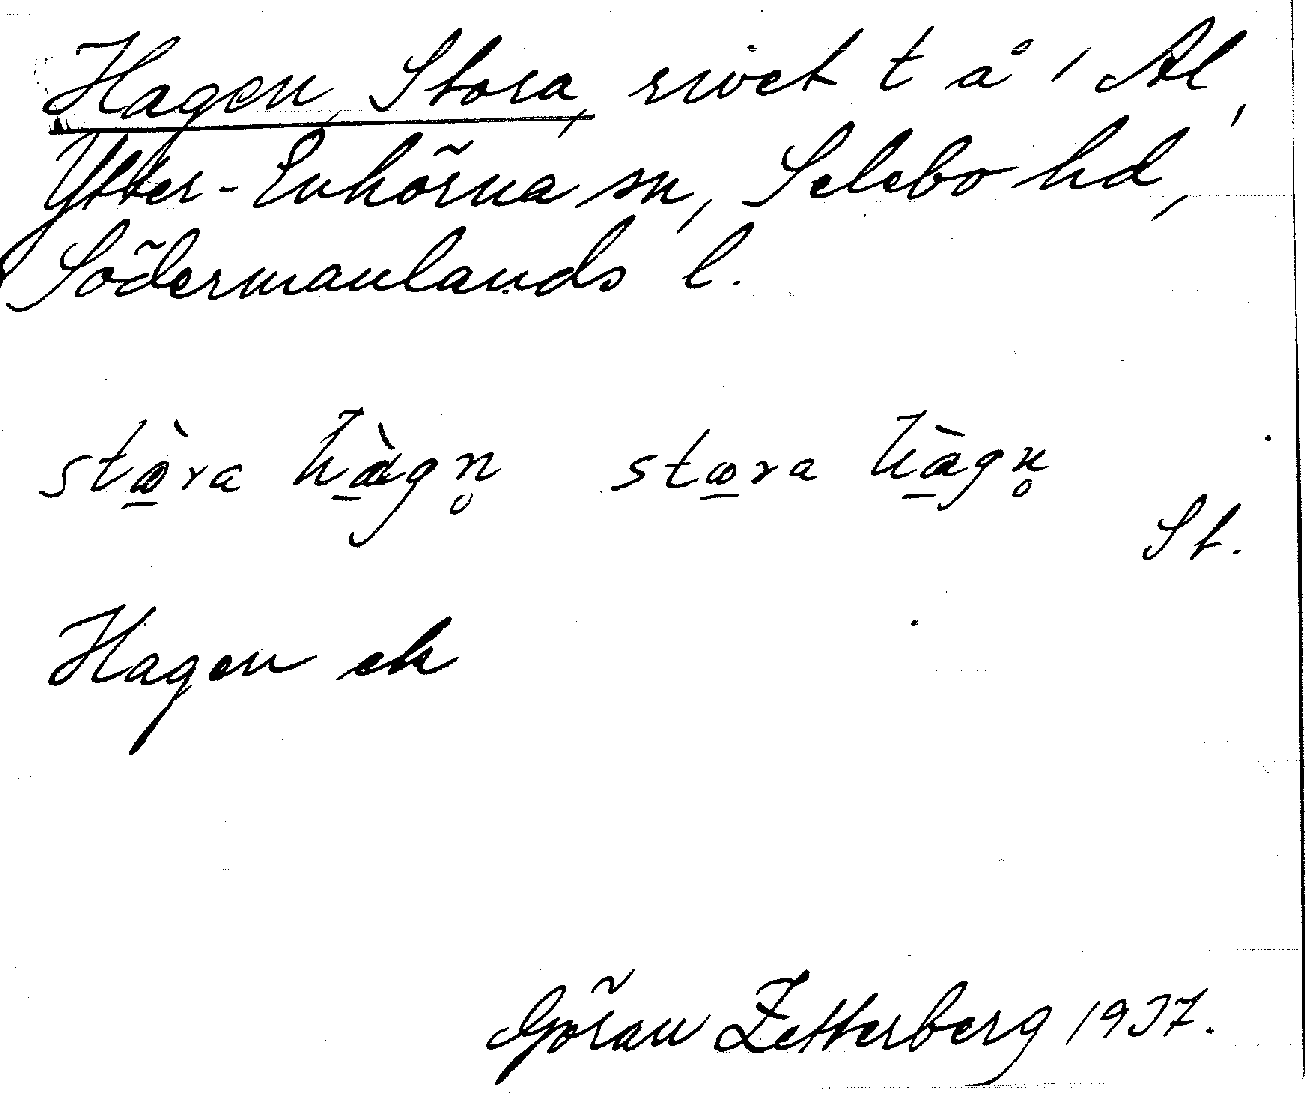 Hagen, Stora, rivet t å i Al,
Ytter-Enhörna sn, Selebo hd,
Södermanlands l.
stɷ̠̀ra hɑ̠̀gn̥ stɷ̠ra hɑ̠̀gn̥
St.
Hagen ek
Göran Zetterberg 1937.